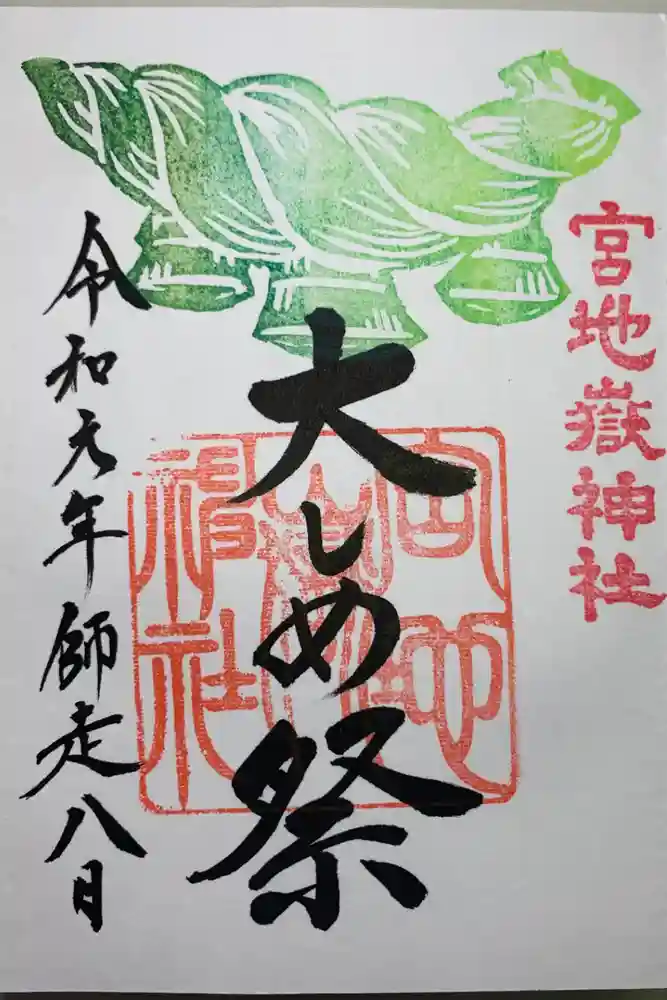 宮地嶽神社
大しめ祭
宮地嶽神社
令和元年師走八日